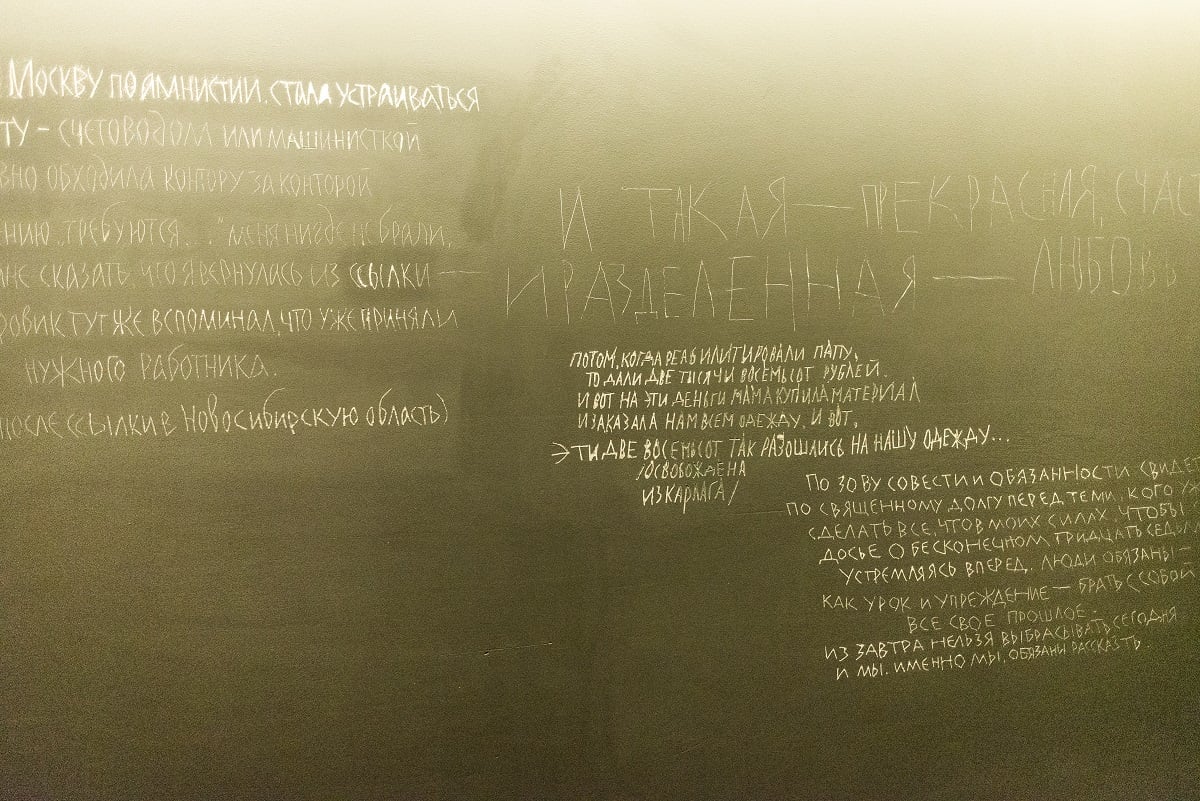 Москву по амнистии. стала устраиваться
ту – счетоводом или машинисткой
вно обходила контору за конторой
нию "требуются..." меня нигде не брали,
не сказать, что я вернулась из ссылки —
ровик тут же вспоминал, что уже приняли
нужного работника.
после ссылки в Новосибирскую область)
И ТАКАЯ — ПРЕКРАСНАЯ, СЧАСТ
И РАЗДЕЛЕННАЯ — ЛЮБОВЬ
ПОТОМ, КОГДА РЕАБИЛИТИРОВАЛИ ПАПУ,
ТО ДАЛИ ДВЕ ТЫСЯЧИ ВОСЕМЬСОТ РУБЛЕЙ.
И ВОТ НА ЭТИ ДЕНЬГИ МАМА КУПИЛА МАТЕРИАЛ
И ЗАКАЗАЛА НАМ ВСЕМ ОДЕЖДУ. И ВОТ,
ЭТИ ДВЕ ВОСЕМЬСОТ ТАК РАЗОШЛИСЬ НА НАШУ ОДЕЖДУ...
/ОСВОБОЖДЕНА
ИЗ КАРЛАГА/
ПО ЗОВУ СОВЕСТИ И ОБЯЗАННОСТИ СВИДЕТ
ПО СВЯЩЕННОМУ ДОЛГУ ПЕРЕД ТЕМИ, КОГО УЖ
СДЕЛАТЬ ВСЕ, ЧТО В МОИХ СИЛАХ, ЧТОБЫ
ДОСЬЕ О БЕСКОНЕЧНОМ ТРИДЦАТЬ СЕДЬМ
УСТРЕМЛЯЯСЬ ВПЕРЕД, ЛЮДИ ОБЯЗАНЫ –
КАК УРОК И УПРЕЖДЕНИЕ — БРАТЬ С СОБОЙ
ВСЕ СВОЕ ПРОШЛОЕ.
ИЗ ЗАВТРА НЕЛЬЗЯ ВЫБРАСЫВАТЬ СЕГОДНЯ
И МЫ, ИМЕННО МЫ, ОБЯЗАНЫ РАССКАЗТЬ.